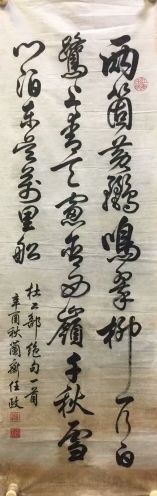 兩箇黄鸝鳴翠柳一行白
鷺上青天窗含西嶺千秋雪
门泊东吴萬里船
杜工部绝句一首
辛酉秋蘭齋任政